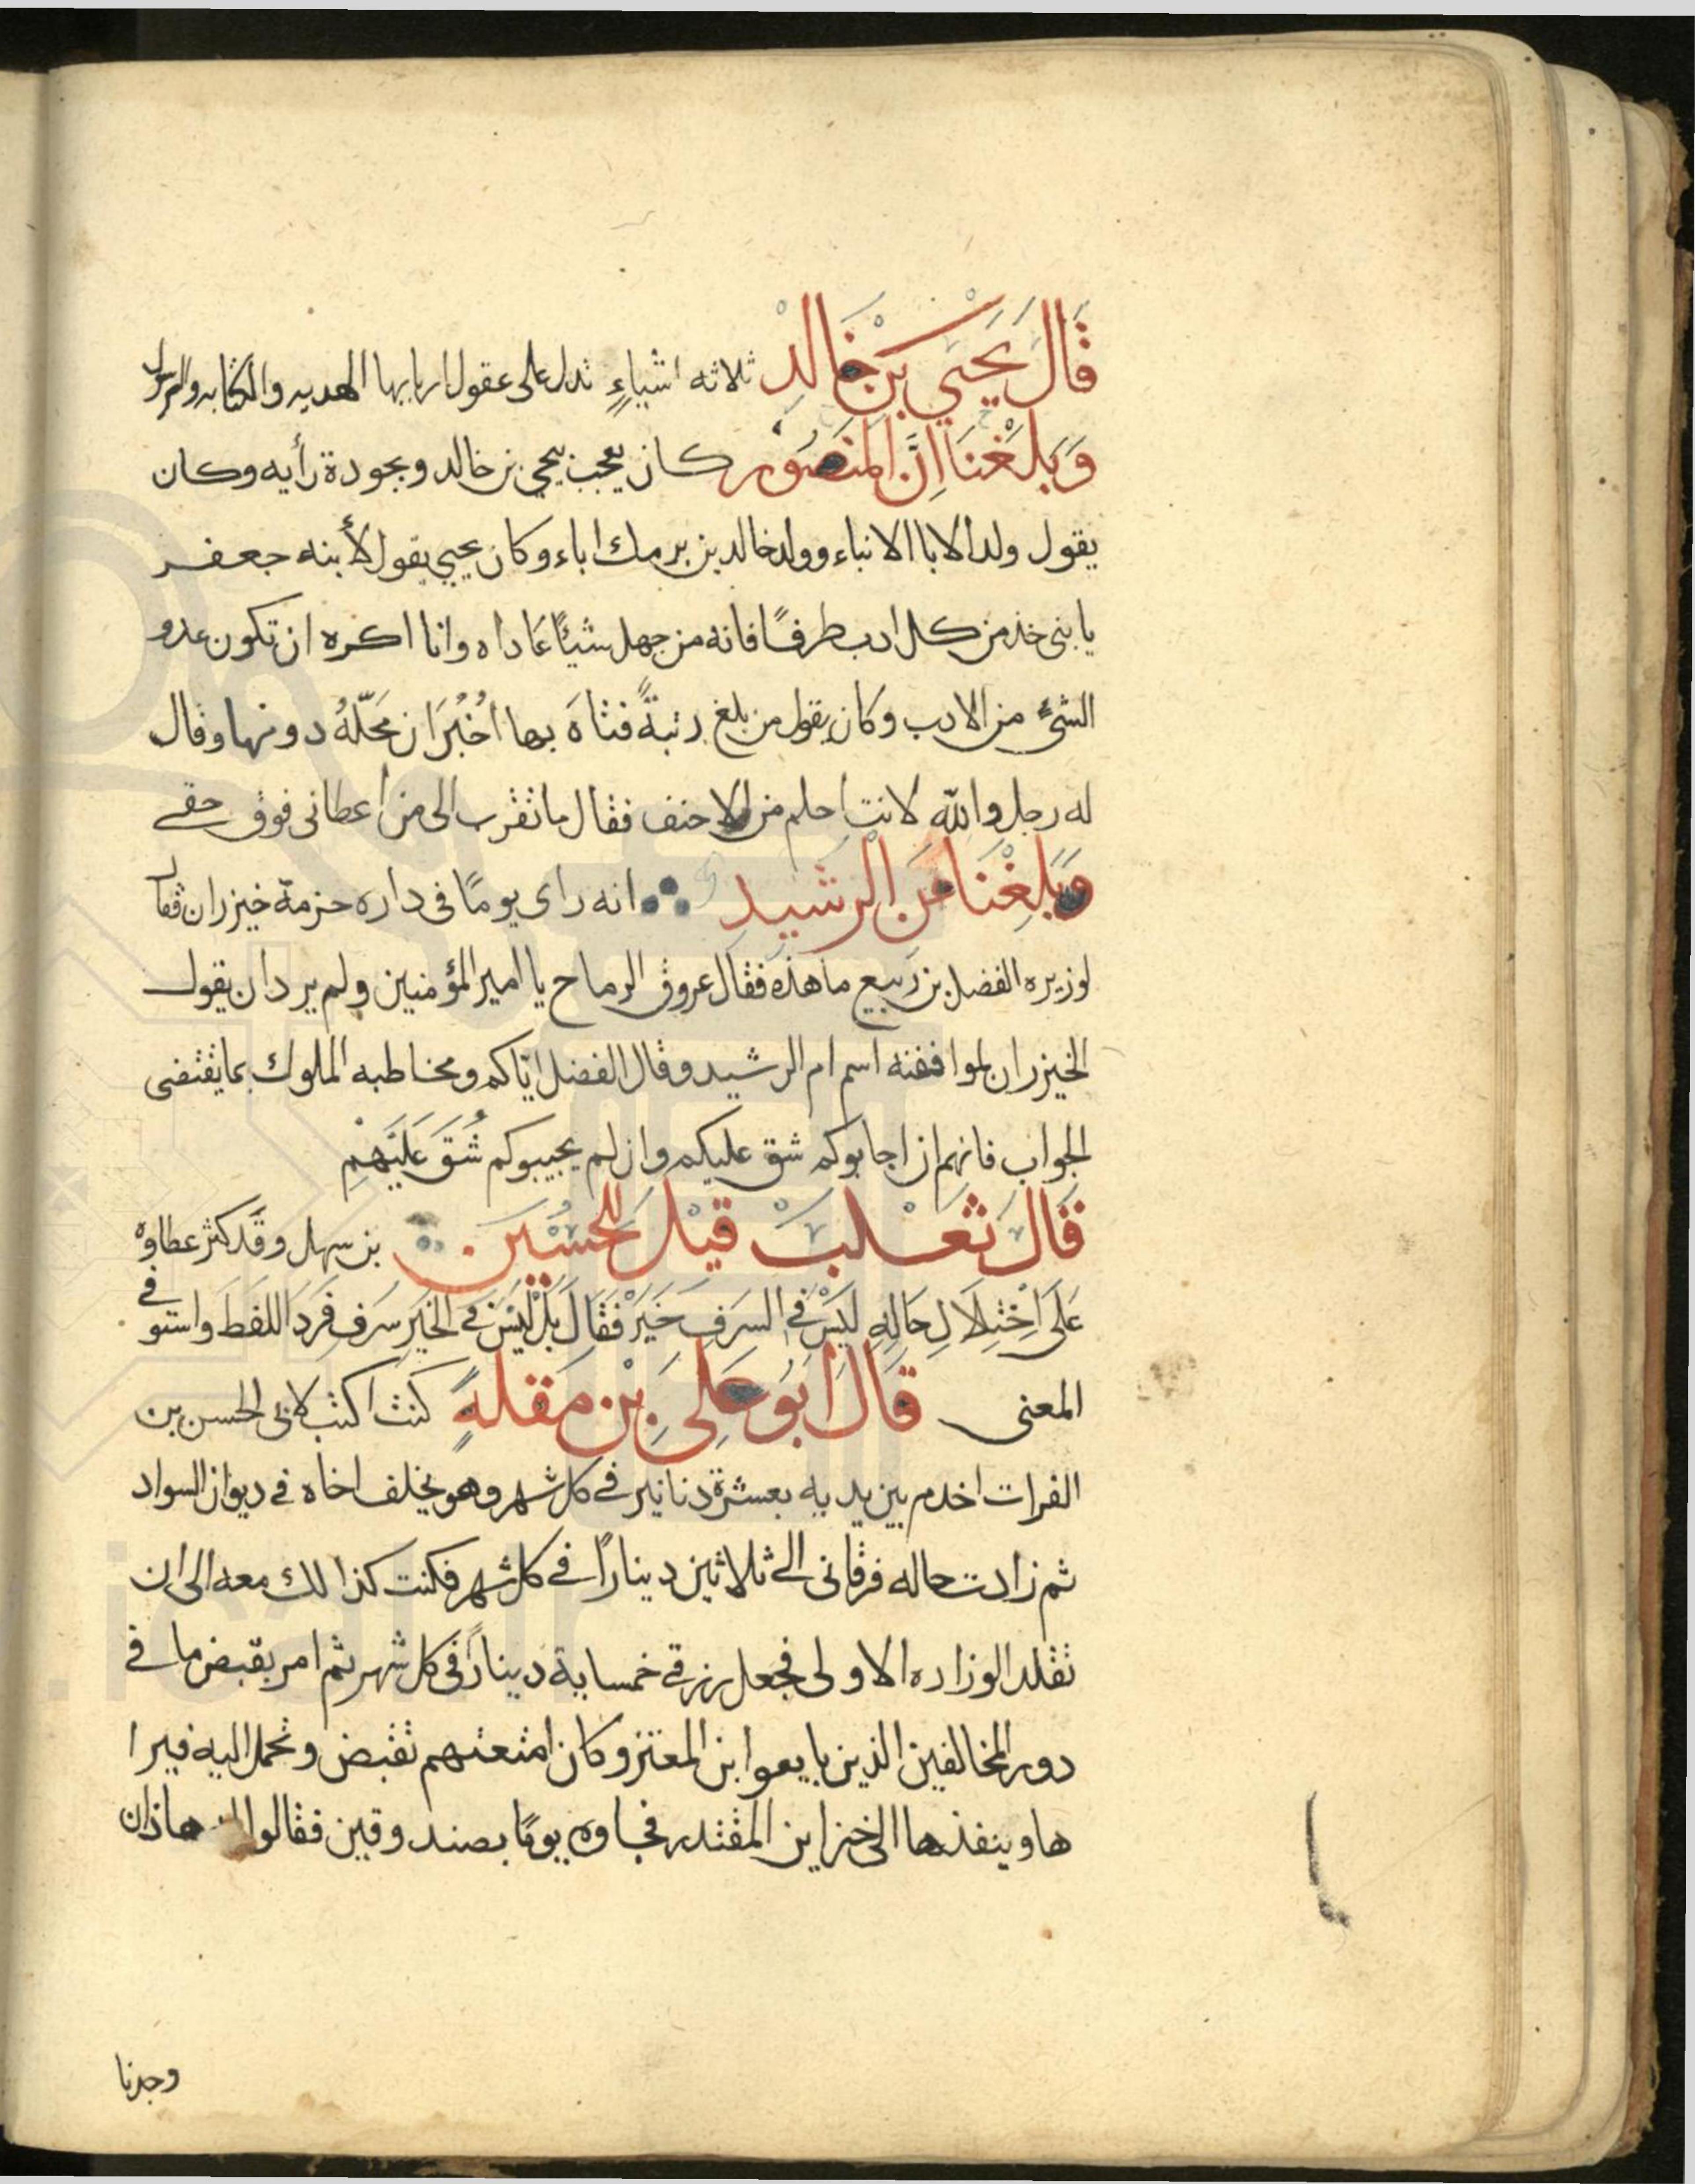 قَالَ يَحْيَي بْنِ خَالِدْ ثلاثه اشياءٍ تدل على عقول اربابها الهديه والكتابه والرسول
وَبَلَغَنَا اِنَّ المَنصُور كان يعجب بيحيي بن خالد وبجودة رأيه وكان
يقول ولد الابا الابناء وولد خالد بن برمك اباء وكان يحيي يقول لأبنه جعفر
يا بنى خذ من كل ادب طرفًا فانه من جهل شيئًا عَاداه وانا اكره ان تكون عدو
الشئ من الادب وكان يقول من بلغ رتبةً فتاهَ بها اَخْبَرَ ان مَحَلّهُ دونها وقال
له رجل والله لانت احلم من الاحنف فقال ما تقرب الى من اعطانى فوق حقے
وَبَلَغْنَا عَنِ الرشيد انه راى يومًا فى داره حزمة خيزران فقال
لوزيره الفضل بن ربيع ما هذه فقال عروق الرماح يا امير المؤمنين ولم يرد ان يقول
الخيزران لموافقته اسم ام الرشيد وقال الفضل ايّاكم ومخاطبه الملوك بما يقتضى
الجواب فانهم ان اجابوكم شق عليكم وان لم يجيبوكم شُقَ عَلَيْهِمْ
قَالَ ثَعْلَبْ قيْلَ للحُسَيْن بن سهل وقَد كثر عطاوه
عَلَى اَخْتِلَالِ حَالِهِ لَيْسَ فے السَرَفِ خَيْرٌ فَقَالَ بَلْ لَيْسَ فے الخَيْرِ سَرف فَرَدَ اللفظَ واستوفے
المعنى قَالَ اَبُو عَلِي بْنِ مَقلهٍ كنت اكتب لابى الحسن بن
الفرات اخدم بين يديه بعشرة دنانير فے كل شهر وهو يخلف اخاه فے ديوان السواد
ثم زادت حاله فرقانى الے ثلاثين دينارًا فے كل شهر فكنت كذالك معه الى ان
تقلد الوزاره الاولى فجعل رزقے خمسماية دينارً فى كل شهر ثم امر بقبض ما فے
دور المخالفين الذين بايعوا ابن المعتز وكان امتعتهم تقبض وتحمل اليه فيرا
ها وينفذها الى خزاين المقتدر فجاوه يومًا بصندوقين فقالوا هاذان
وجدنا